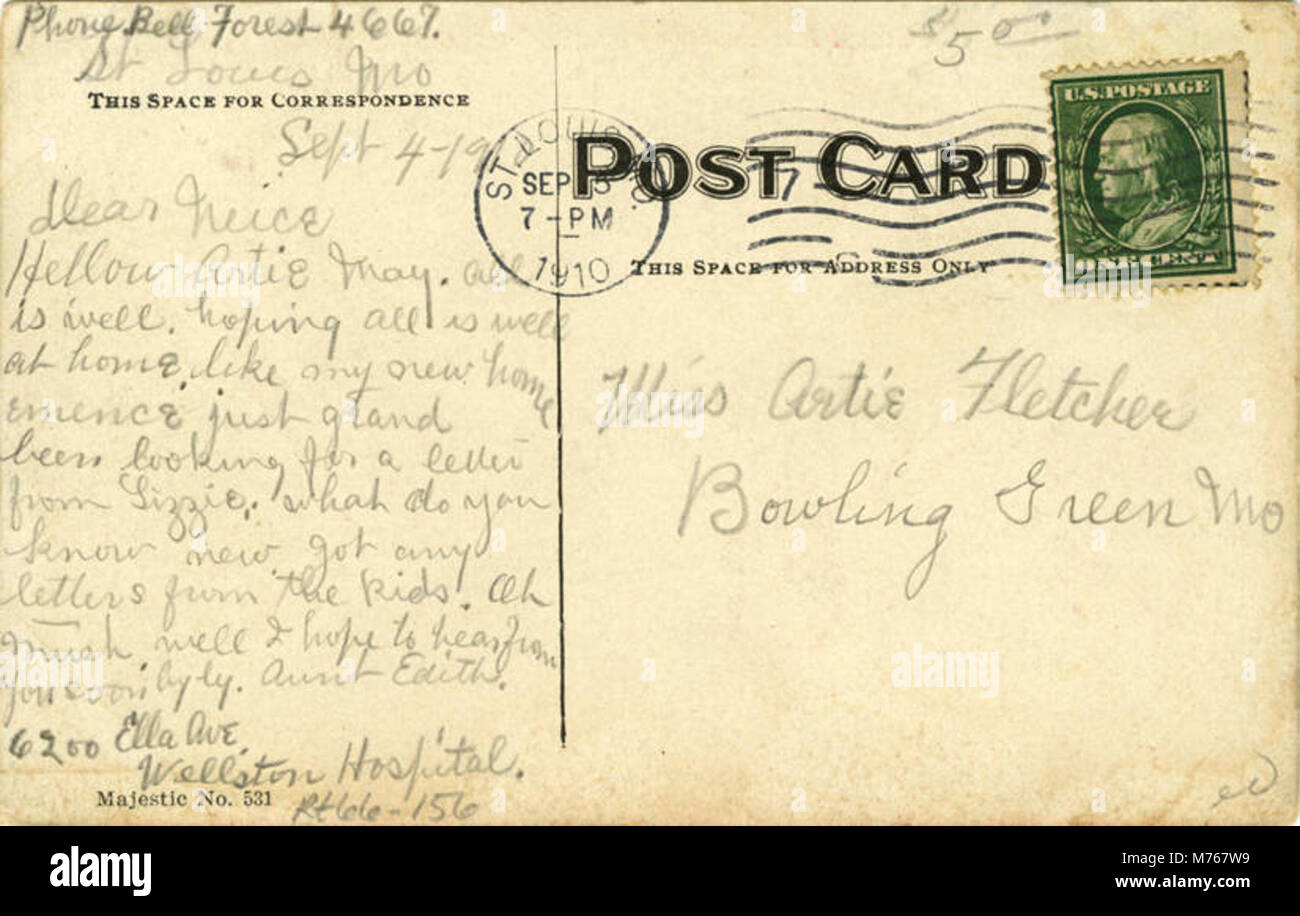 Phone Bell Forest 4667.
St Louis Mo
THIS SPACE FOR CORRESPONDENCE
Sept 4-19
Dear Neice
Hellow Artie May. all
is well. hoping all is well
at home, like my new home
just grand
been looking for a letter
from Lizzie. what do you
know new. got any
letters from the kids. Oh
mush. well I hope to hear from
you soon by ly. Aunt Edith.
6200 Ella Ave.
Wellston Hospital.
Majestic No. 531
Rt66-156
$5.00
ST. LOUIS MO
SEP 5
7-PM
1910
POST CARD
7
THIS SPACE FOR ADDRESS ONLY
U.S. POSTAGE
ONE CENT
Miss Artie Fletcher
Bowling Green Mo
alamy
alamy
Image ID: M767W9
www.alamy.com